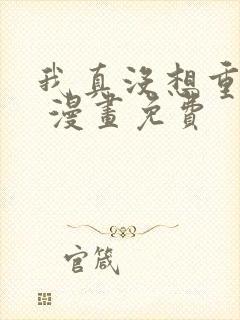 我真没想重
漫畫免費
官箴